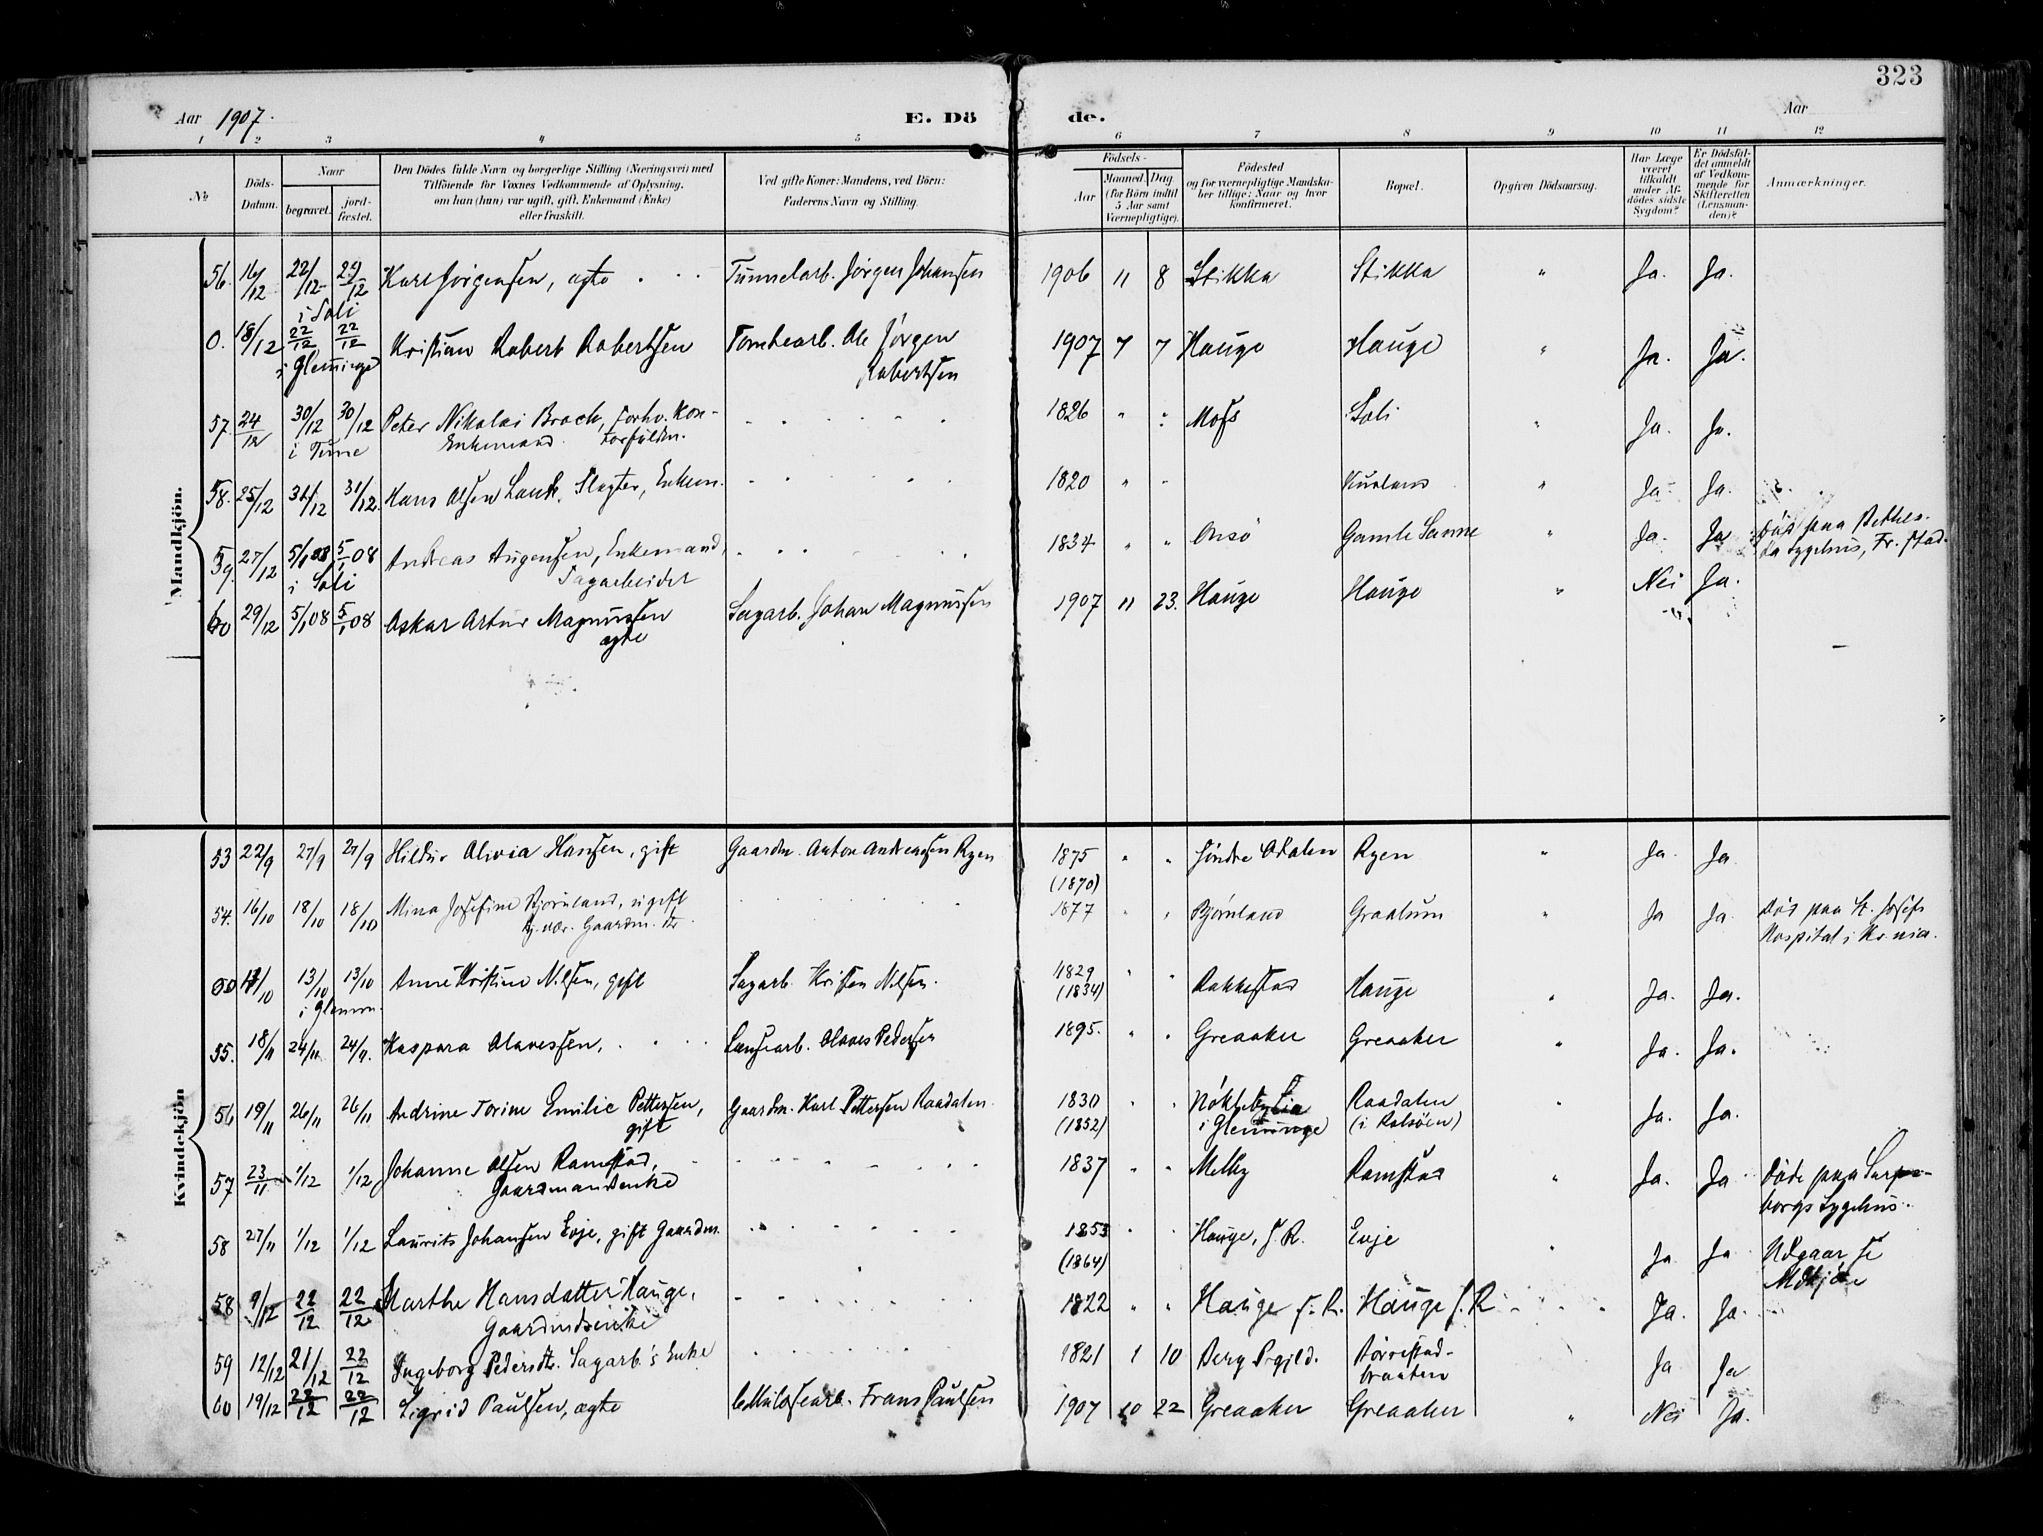 323
Aar 1907. E. Dö de. Aar
1 2 3 4 5 6 7 8 9 10 11 12
No Döds-Datum. Naar begravet. jord-fæstet. Den Dödes fulde Navn og borgerlige Stilling (Næringsvei) med Tilföiende for Voxnes Vedkommende af Oplysning, om han (hun) var ugift, gift, Enkemand (Enke) eller fraskilt. Ved gifte Koner: Mandens, ved Börn: Faderens Navn og Stilling. Födsels- Aar Maaned. Dag (for Börn indtil 5 Aar samt Værnepligtige). Födested og for værnepligtige Mandska-ber tillige: Naar og hvor konfirmeret. Bopæl. Opgiven Dödsaarsag. Har Læge været tilkaldt under Af-dödes sidste Sygdom? Er Dödsfal-det anmeldt af Vedkom-mende for Skifteretten (Lensman-den)? Anmærkninger.
Mandkjön.
56. 16/12 22/12 29/12 Karl Jörgensen, ægte Tunnelarb. Jörgen Johansen 1906 11 8 Stikka Stikka " Ja. Ja.
i Soli
0. 18/12 22/12 22/12 Kristian Robert Robertsen Tomtearb. Ole Jörgen 1907 7 7 Hauge Hauge " Ja. Ja.
i Glemminge Robertsen
57. 24/12 30/12 30/12 Peter Nikolai Brock, forhv. Kon- 1826 " " Moss Soli " Ja. Ja.
i Tune Enkemand forfuldm.
58. 25/12 31/12 31/12. Hans Olsen Lande, Slagter, Enkem. 1820 " " Kurland " Ja. Ja.
59. 27/12 5/1 08 5/1 08 Andreas Augensen, Enkemand, 1834 " " Onsö Gamle Sanne " Ja. Ja Död paa Bethes-
i Soli Dagarbeider da Sygehus, Fr.stad.
60 29/12 5/1 08 5/1 08 Oskar Artur Magnussen Sagarb. Johan Magnussen 1907 11 23. Hauge Hauge " Nei Ja.
ægte
Kvindekjön
53 22/9 27/9 27/9 Hildur Olivia Hansen, gift Gaardm. Anton Andreassen Ryen 1875 " " Söndre Odalen Ryen " Ja. Ja
(1870)
54. 16/10 18/10 18/10 Mina Josefine Björnland, ugift 1877 " " Björnland Graalum " Ja Ja. Död paa St. Josefs
Gaardm. Dtr. Hospital i Kr.nia.
11/10 13/10 13/10 Anne Kristine Nilsen, gift Sagarb. Kristen Nilsen. 1829 " " Rakkestad Hauge " Ja. Ja.
i Glemm. (1834)
55. 18/11 24/11 24/11. Kaspara Olavessen, Lænsearb. Olaves Pedersen 1895. " " Greaaker Greaaker " Ja. Ja.
56 19/11 26/11 26/11 Andrine Torine Emilie Pettersen, Gaardm. Karl Pettersen Raadalen. 1830 " " Nöklebylia Raadalen " Ja. Ja.
gift (1852) i Glemminge) (i Rolsöen)
57 23/11 1/12 1/12 Johanne Olsen Ramstad, 1837 " " Melby Ramstad " Ja. Ja Döde paa Sarps-
Gaardmandsenke borgs Sygehus.
58 27/11 1/12 1/12 Laurits Johansen Evje, gift Gaardm. 1853 " " Hauge, s. R. Evje " Ja Ja Udgaar se
(1864) Mdkjön
58 9/12 22/12 22/12 Marthe Hansdatter Hauge, 1822 " " Hauge s. R. Hauge s. R Ja. Ja.
Gaardmdsenke
59 12/12 21/12 22/12 Ingeborg Pedersdtr. Sagarb's Enke 1821 1 10 Berg Prgjld. Börrestad- Ja Ja
braaten
60 19/12 22/12 22/12 Sigrid Paulsen, ægte Cellulosearb. Frans Paulsen 1907 10 22 Greaaker Greaaker " Nei Ja.